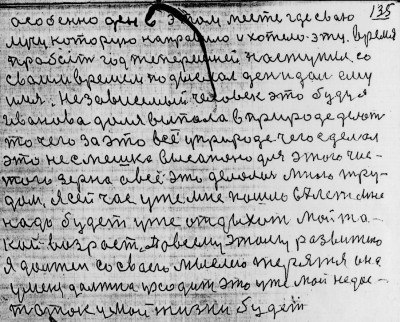 135
особенно ден в этом месте где сваю
мыс которую направило и хотело эту. Время
пробсит год теперешней наступил со
своим временем подшехал ден и дал ему
имя. Независимый человек это буду я
иванова доля выпала в природе дают
то чего за это всё у природе чего сделал
это не смешка высеяноно для этого чис-
того зерна а всё это делолил мною тру-
дом, я сей час уже мне пошло лет мне
надо будет уже отдыхот мой та-
кой возраст, по всему этому развитию
я должен со своею мыслею она
умеи должна уходит это уже мой недос-
таток у мой жизни будет